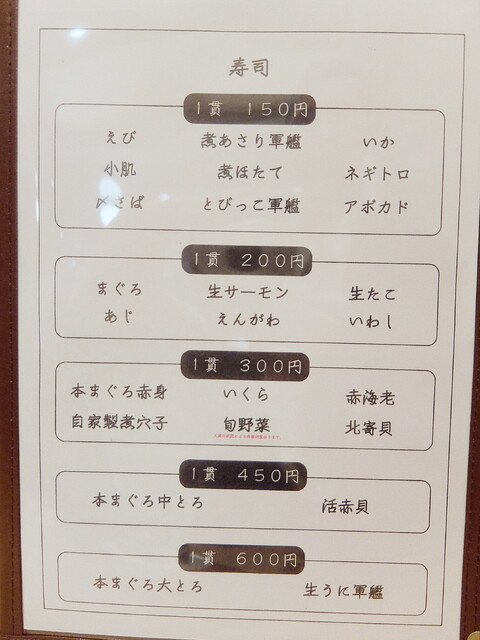 寿司
1貫 150円
えび 煮あさり軍艦 いか
小肌 煮ほたて ネギトロ
〆さば とびっこ軍艦 アボカド
1貫 200円
まぐろ 生サーモン 生たこ
あじ えんがわ いわし
1貫 300円
本まぐろ赤身 いくら 赤海老
自家製煮穴子 旬野菜 北寄貝
1貫 450円
本まぐろ中とろ 活赤貝
1貫 600円
本まぐろ大とろ 生うに軍艦